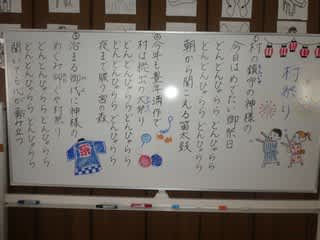 村祭り
①村の鎮守の神様の
今日はめでたい御祭日
どんどんひゃらら どんひゃらら
どんどんひゃらら どんひゃらら
朝から聞こえる笛太鼓
②今年も豊年満作で
村は総出の大祭り
どんどんひゃらら どんひゃらら
どんどんひゃらら どんひゃらら
夜まで賑う宮の森
③治まる御代に神様の
めぐみ仰ぐや村祭り
どんどんひゃらら どんひゃらら
どんどんひゃらら どんひゃらら
聞いても心が勇み立つ
祭